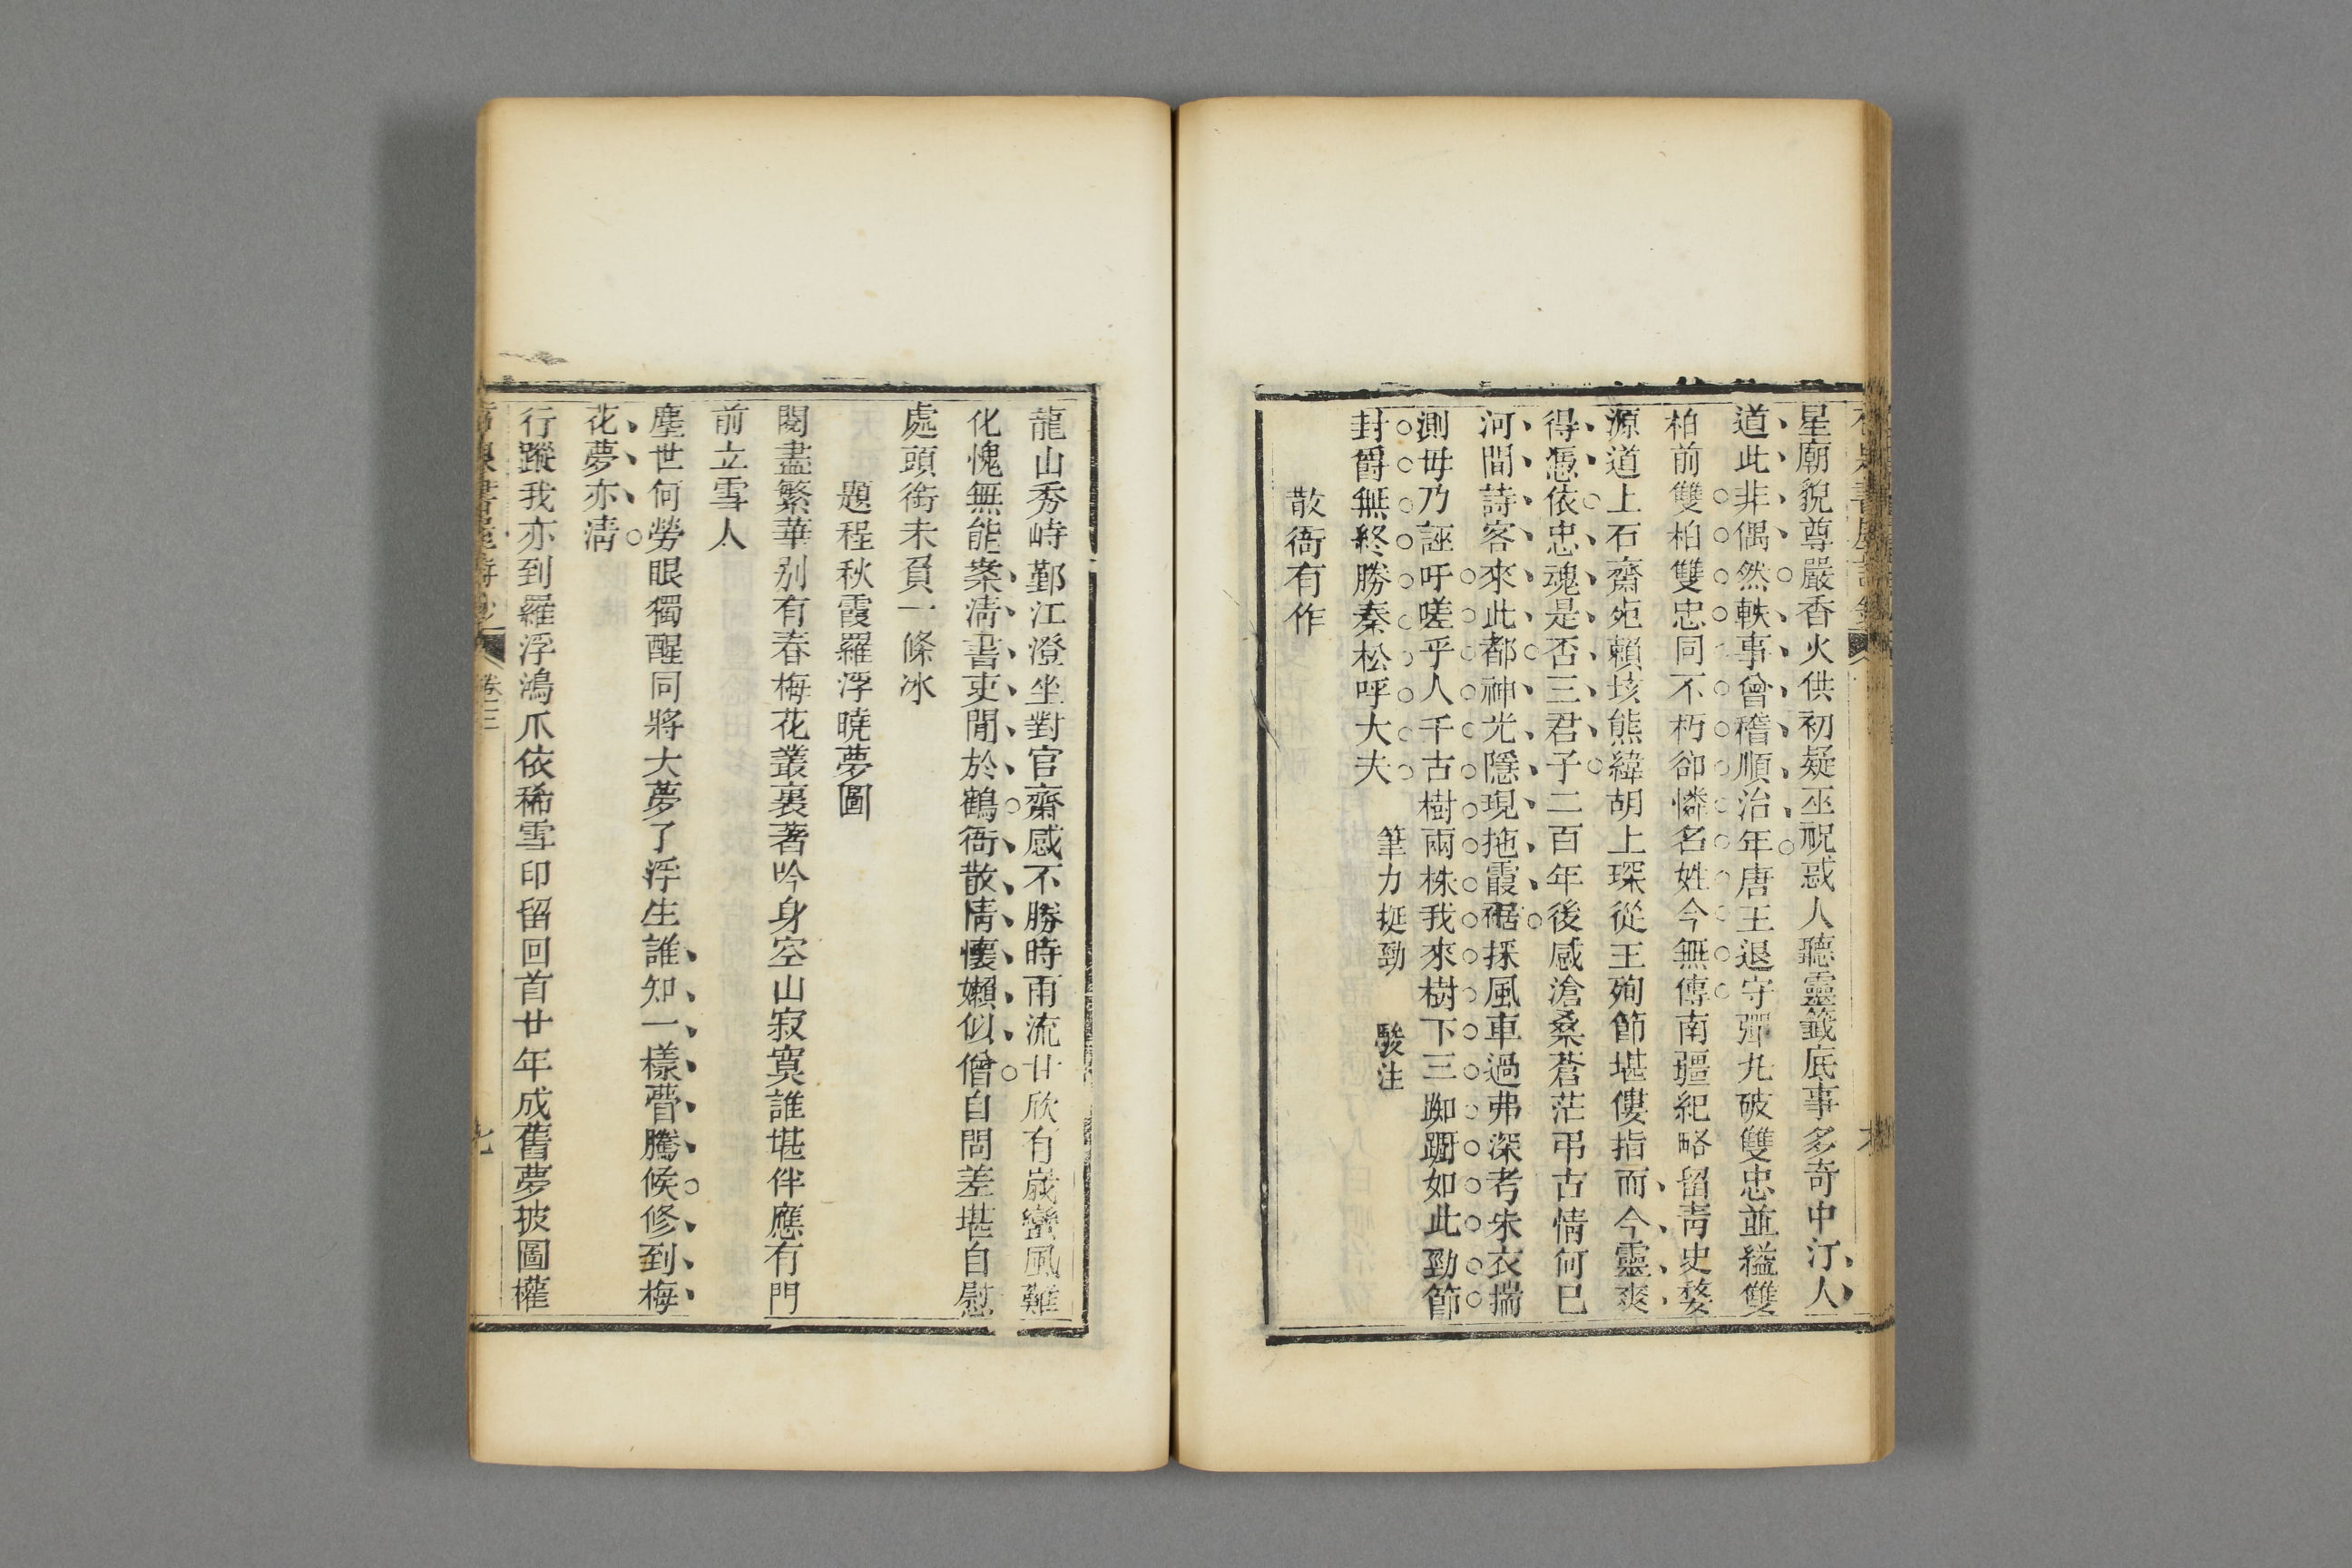 星廟貌尊嚴香火供初疑巫祝惑人聽靈籤底事多奇中汀人
道此非偶然軼事曾稽順治年唐王退守彈丸破雙忠並縊雙
柏前雙柏雙忠同不朽卻憐名姓今無傳南疆紀略留靑史婺
源道上石齋死賴垓熊緯胡上琛從王殉節堪僂指而今靈爽
得憑依忠魂是否三君子二百年後感滄桑蒼茫弔古情何已
河間詩客來此都神光隱現拖霞裾採風車過弗深考朱衣揣
測毋乃誣吁嗟乎人千古樹兩株我來樹下三踟躕如此勁節
封爵無終勝秦松呼大夫 筆力挺勁 駿注
散衙有作
龍山秀峙鄞江澄坐對官齋感不勝時雨流甘欣有歲蠻風難
化愧無能案淸書吏閒於鶴衙散情懷嬾似僧自問差堪自慰
處頭銜未負一條冰
題程秋霞羅浮曉夢圖
閱盡繁華别有春梅花叢裏著吟身空山寂寞誰堪伴應有門
前立雪人
塵世何勞眼獨醒同將大夢了浮生誰知一樣瞢騰候修到梅
花夢亦淸
行蹤我亦到羅浮鴻爪依稀雪印留回首廿年成舊夢披圖權
卷三